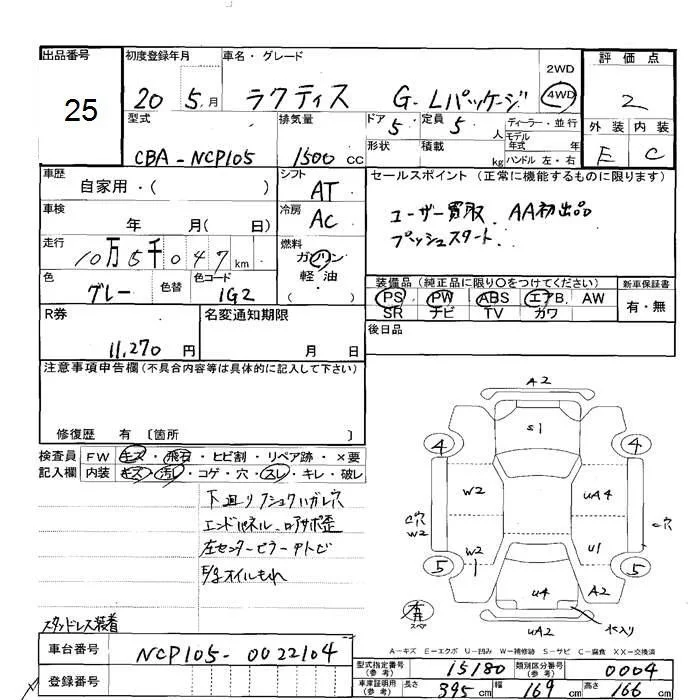 出品番号 初度登録年月 車名・グレード 評価点
25 20 5月 ラクティス G-Lパッケージ 2WD 4WD 2
型式 排気量 ドア 5 定員 5 人 ディーラー・並行 外装 内装
CBA-NCP105 1500 cc 形状 積載 kg モデル年式 年 ハンドル 左・右 E C
車歴 自家用・( ) シフト AT セールスポイント(正常に機能するものに限ります)
車検 年 月( 日) 冷房 AC ユーザー買取. AA初出品
走行 10万5千047km 燃料 ガソリン プッシュスタート.
軽油
色 グレー 色替 色コード 1G2 ( ) 装備品(純正品に限り○をつけてください) 新車保証書
PS PW ABS エアB. AW 有・無
SR ナビ TV カワ
R券 11,270 円 名変通知期限 月 日 後日品
注意事項申告欄(不具合内容等は具体的に記入して下さい)
修復歴 有 〔箇所 〕
検査員 FW キズ・飛石・ヒビ割・リペア跡・×要
記入欄 内装 キズ・汚レ・コゲ・穴・スレ・キレ・破レ
A2
S1
4 4
W2 UA4
C穴 W2 C穴
W2 1 U1
5 5
U4 A2
UA2
有 スペア
下回り
エンドパネル.
左センターピラー
オイルもれ
スタッドレス装着
A-キズ E-エクボ U-凹み W-補修跡 S-サビ C-腐食 XX-交換済
車台番号 NCP105-0022104
登録番号
型式指定番号(参考) 15180 類別区分番号(参考) 0004
車庫証明用(参考) 長さ 395cm 幅 169cm 高さ 166cm